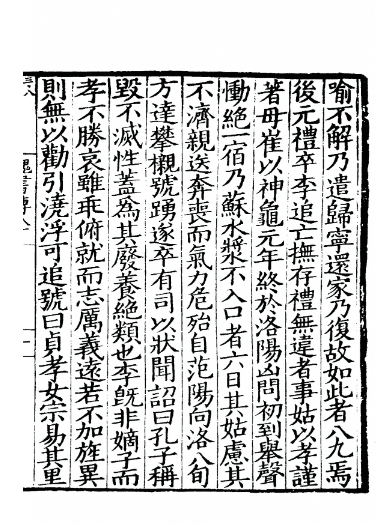 喻不解乃遣歸寧還家乃復故如此者八九焉
後元禮卒李追亡撫存禮無違者事姑以孝謹
著母崔以神龜元年終於洛陽凶問初到舉聲
慟絕一宿乃蘇水漿不入口者六日其姑慮其
不濟親送奔喪而氣力危殆自范陽向洛八旬
方達攀櫬號踴遂卒有司以狀聞詔曰孔子稱
毀不滅性蓋爲其廢養絕類也李旣非嫡子而
孝不勝哀雖乖俯就而志厲義遠若不加旌異
則無以勸引澆浮可追號曰貞孝女宗易其里